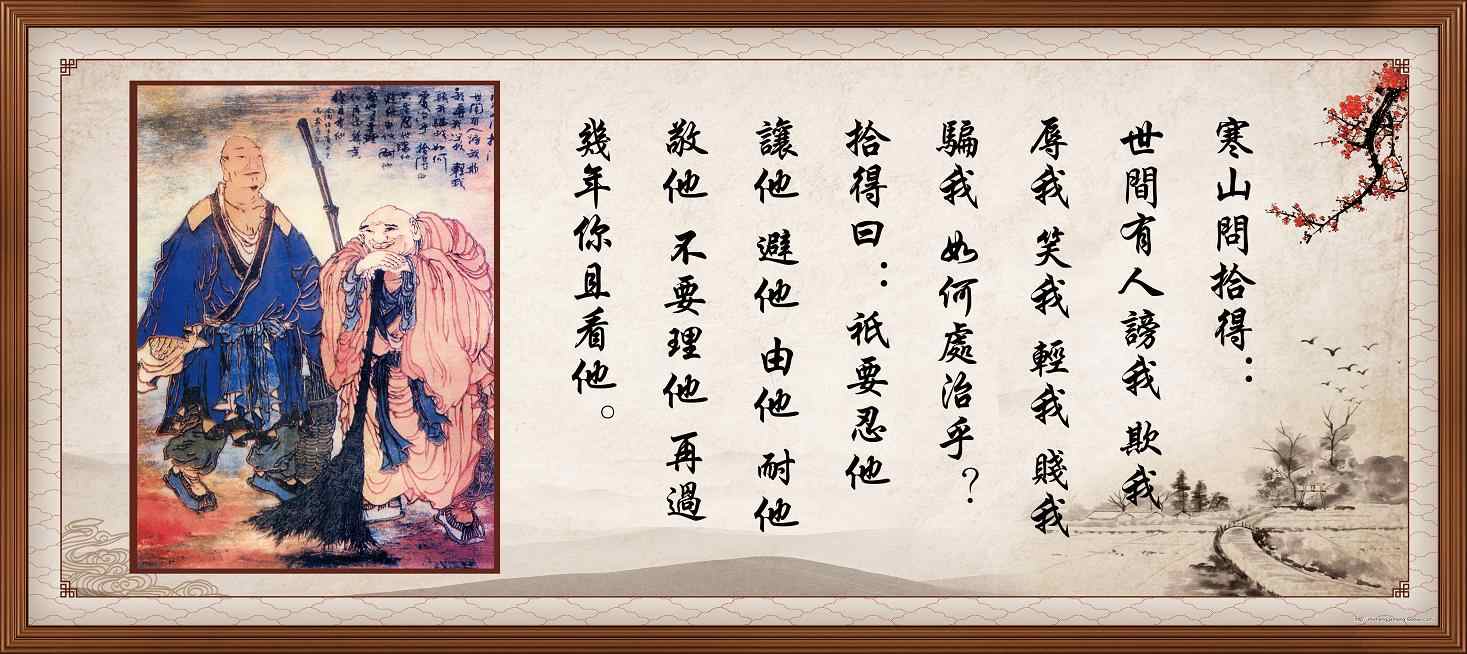 寒山問拾得：
世間有人謗我 欺我
辱我 笑我 輕我 賤我
騙我 如何處治乎？
拾得曰：祇要忍他
讓他 避他 由他 耐他
敬他 不要理他 再過
幾年你且看他。